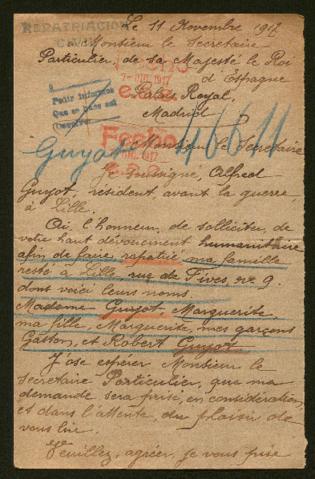 REPATRIACION
Le 11 Novembre 1917
Monsieur le Secretaire
Particulier, de sa Majesté le Roi
d'Espagne
Palais Royal,
Madrid
7- DIC. 1917
Pedir informes
Fecho
DIC. 1917
Guyot
46611
Monsieur le Secretaire
Je soussigné, Alfred
Guyot, résident, avant la guerre,
à Lille.
Ai, l'honneur, de solliciter, de
votre haut dévouement humanitaire
afin de faire, rapatrié, ma famille
resté à Lille, rue de Fives, nº 9
dont voici leurs noms.
Madame Guyot Marguerite,
ma fille, Marguerite, mes garçons
Gaston, et Robert Guyot.
J'ose espérer Monsieur le
Secretaire Particulier, que ma
demande sera prise, en considération,
et dans l'attente du plaisir de
vous lire.
Veuillez, agréer, je vous prie